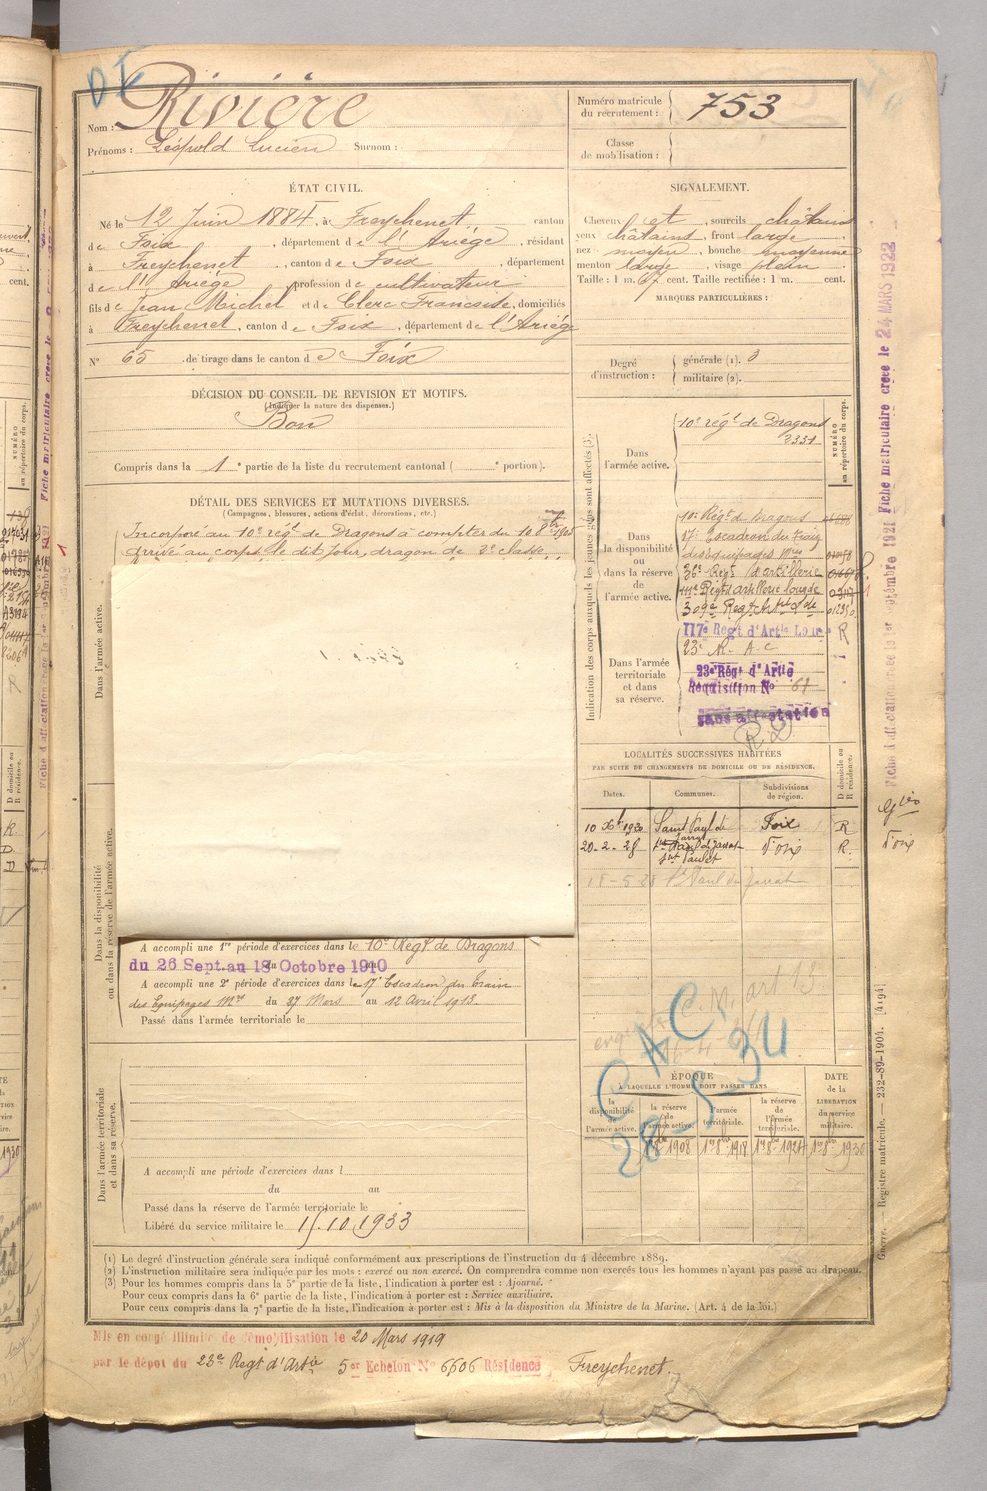 Rivière
Nom :
Prénoms : Léopold Lucien Surnom :
Numéro matricule
du recrutement : 753
Classe
de mobilisation :
ÉTAT CIVIL.
Né le 12 Juin 1884, à Freychenet canton
de Foix, département de l'Ariège, résidant
à Freychenet, canton de Foix, département
de l'Ariège profession de cultivateur
fils de Jean Michel et de Clerc Francoise, domiciliés
à Freychenet, canton de Foix, département de l'Ariège
N° 65 de tirage dans le canton de Foix
SIGNALEMENT.
Cheveux et, sourcils châtains
yeux châtains, front large
nez moyen, bouche moyenne
menton large, visage plein
Taille : 1 m. 67 cent. Taille rectifiée : 1 m. cent.
MARQUES PARTICULIÈRES :
Degré
d'instruction :
générale (1). 3
militaire (2).
DÉCISION DU CONSEIL DE REVISION ET MOTIFS.
(Indiquer la nature des dispenses.)
Bon
Compris dans la 1e partie de la liste du recrutement cantonal ( e portion).
DÉTAIL DES SERVICES ET MUTATIONS DIVERSES.
(Campagnes, blessures, actions d'éclat, décorations, etc.)
Incorporé au 10e régt de Dragons à compter du 8
Arrivé au corps le dit jour, dragon de 2e classe
Dans l'armée active.
Dans la disponibilité
ou dans la réserve de l'armée active.
A accompli une 1re période d'exercices dans le 10e Régt de Dragons
du 26 Sept. au 18 Octobre 1910
A accompli une 2e période d'exercices dans le 17e Escadron du Train
des Equipages Mres du 27 Mars au 12 Avril 1913
Passé dans l'armée territoriale le
Dans l'armée territoriale
et dans sa réserve.
A accompli une période d'exercices dans l
du au
Passé dans la réserve de l'armée territoriale le
Libéré du service militaire le 15.10.1933
Indication des corps auxquels les jeunes gens sont affectés (3).
NUMÉRO
au répertoire du corps.
Dans
l'armée active.
10e régt de Dragons
2331
Dans
la disponibilité
ou
dans la réserve
de
l'armée active.
10e Régt de Dragons
17e Escadron du Train
des équipages Mres
36e Régt d'artillerie
111e Régt d'artillerie lourde
Dans l'armée
territoriale
et dans
sa réserve.
117e Régt d'Artie Lourde R
23e R.A.C
23e Régt d'Artie
Réquisition N° 61
Sans affectation
LOCALITÉS SUCCESSIVES HABITÉES
PAR SUITE DE CHANGEMENTS DE DOMICILE OU DE RÉSIDENCE.
Dates. Communes. Subdivisions
de région.
D domicile ou
R résidence.
10 Xbre 1920 Saint Paul de Jarrat Foix R
20-2-28 St Paul de Jarrat Foix R.
18-5-28 St Paul de Jarrat
C.A.C.
28-5-34
ÉPOQUE
À LAQUELLE L'HOMME DOIT PASSER DANS
la
disponibilité
de
l'armée active.
la réserve
de
l'armée active.
l'armée
territoriale.
la réserve
de
l'armée
territoriale.
DATE
de la
LIBÉRATION
du service
militaire.
1er 8bre 1908 1er 8bre 1918 1er 8bre 1924 1er 8bre 1930
(1) Le degré d'instruction générale sera indiqué conformément aux prescriptions de l'instruction du 4 décembre 1889.
(2) L'instruction militaire sera indiquée par les mots : exercé ou non exercé. On comprendra comme non exercés tous les hommes n'ayant pas passé au drapeau.
(3) Pour les hommes compris dans la 5e partie de la liste, l'indication à porter est : Ajourné.
Pour ceux compris dans la 6e partie de la liste, l'indication à porter est : Service auxiliaire.
Pour ceux compris dans la 7e partie de la liste, l'indication à porter est : Mis à la disposition du Ministre de la Marine. (Art. 4 de la loi.)
Mis en congé illimité de démobilisation le 20 Mars 1919
par le dépôt du 23e Regt d'Artie 5e Echelon N° 6606 Résidence Freychenet
Fiche d'affectation créée le 1er septembre 1921 Fiche matriculaire créée le 24 MARS 1922
Guerre. — Registre matricule. — 232-89-1904. [4194]